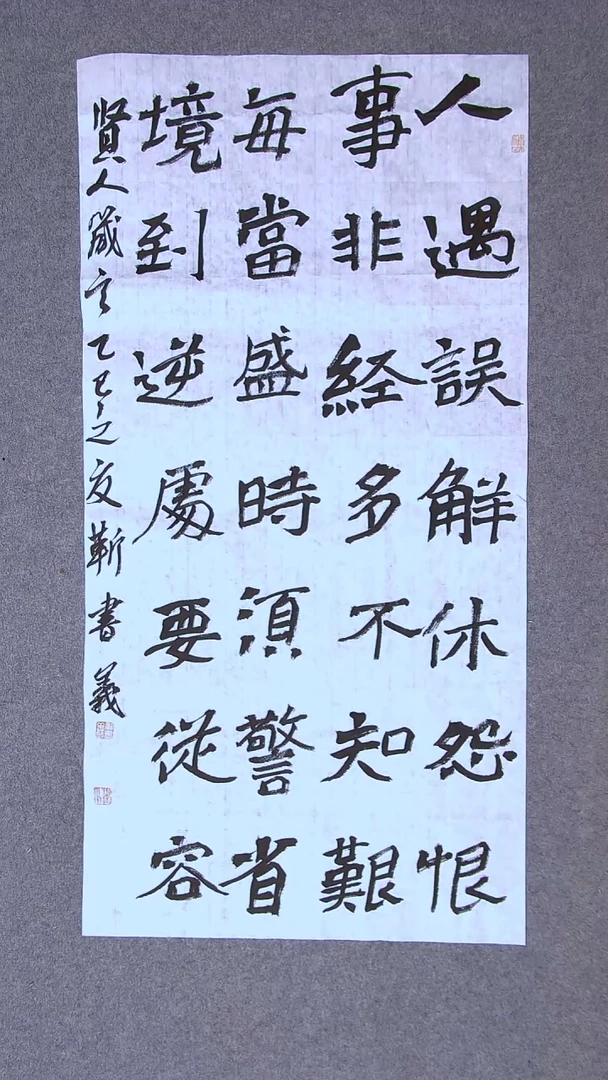 人遇誤解休怨恨
事非経多不知艱
每當盛時須警省
境到逆處要從容
賢人箴言乙巳之夏靳書義